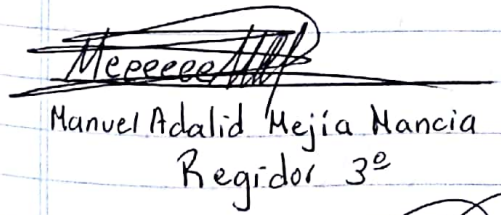 Manuel Adalid Mejía Mancia
Regidor 3º